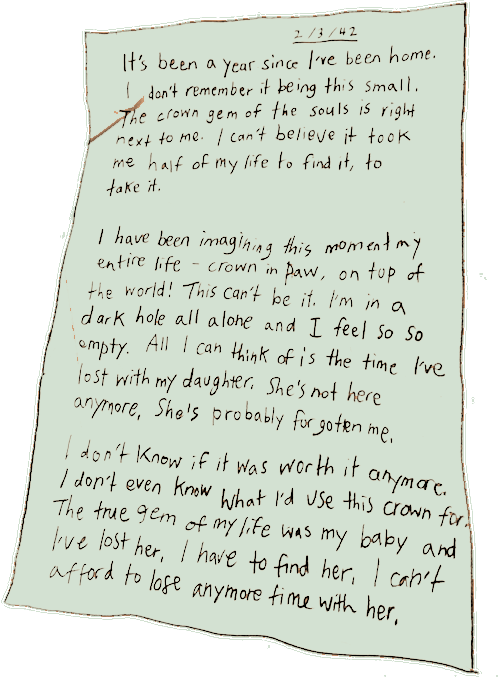 2/3/42
It's been a year since I've been home.
I don't remember it being this small.
The crown gem of the souls is right
next to me. I can't believe it took
me half of my life to find it, to
take it.
I have been imagining this moment my
entire life - crown in paw, on top of
the world! This can't be it. I'm in a
dark hole all alone and I feel so so
empty. All I can think of is the time I've
lost with my daughter. She's not here
anymore. She's probably forgotten me.
I don't know if it was worth it anymore.
I don't even know what I'd use this crown for.
The true gem of my life was my baby and
I've lost her. I have to find her. I can't
afford to lose anymore time with her.